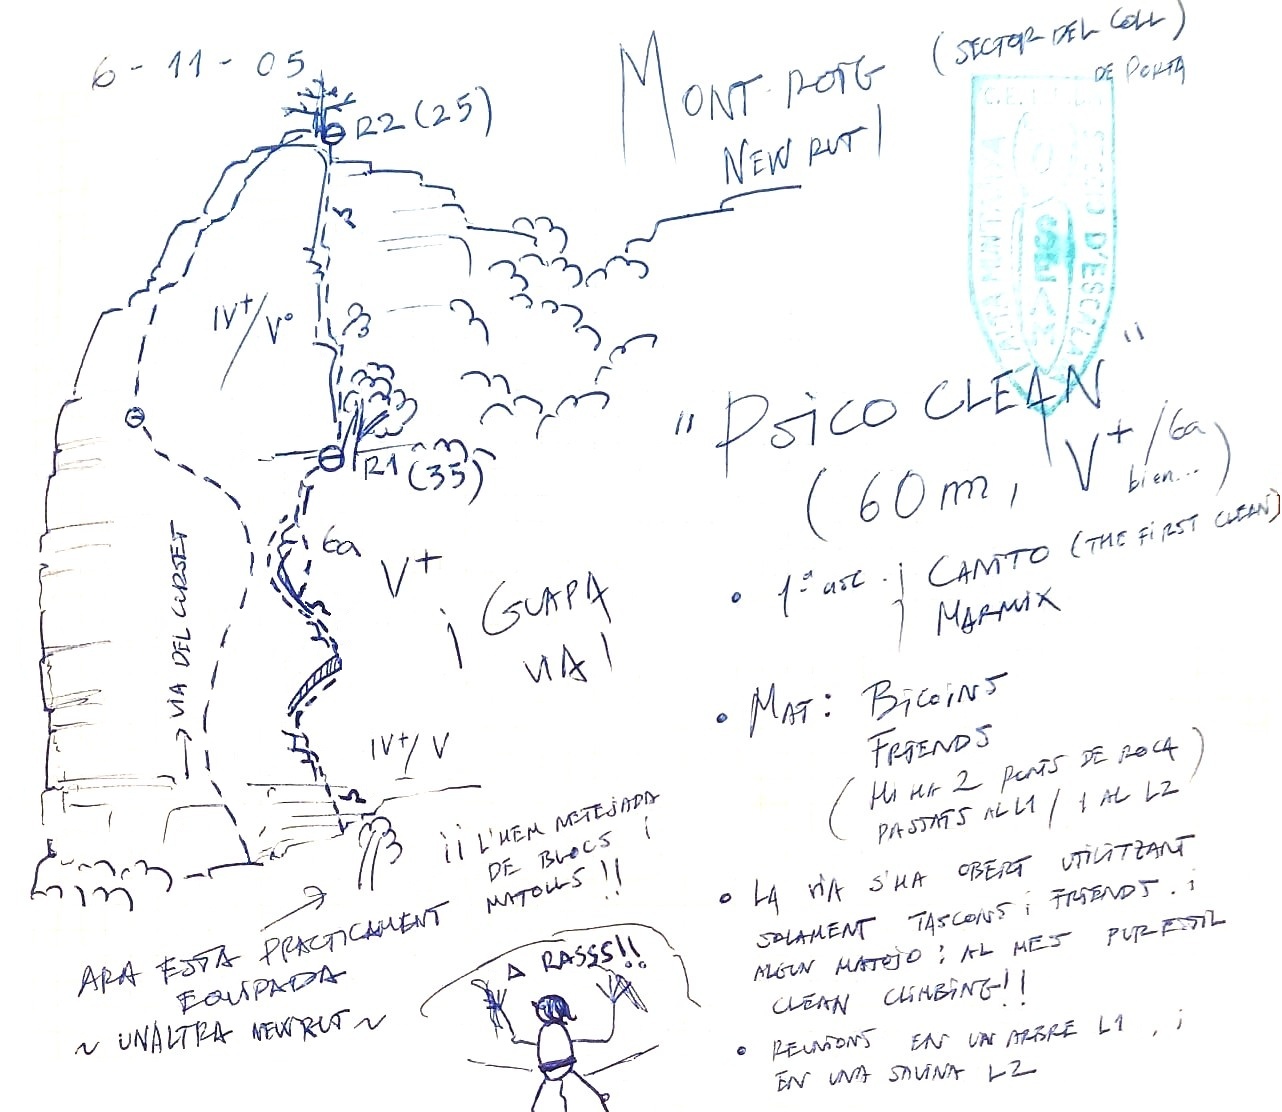 6-11-05
R2 (25)
MONT-ROIG
NEW RUT!
(SECTOR DEL COLL)
DE PORTA
IV+/Vº
"PSICO CLEAN"
(60m, V+/6a
bien...)
R1 (35)
6a
V+
¡GUAPA
VIA!
VIA DEL CURSET
IV+/V
• 1ª asc. CANTO (THE FIRST CLEAN)
MARMIX
• MAT: BICOINS
FRIENDS
(HI HA 2 PONTS DE ROCA
PASSATS AL L1 / 1 AL L2)
¡¡ L'HEM NETEJADA
DE BLOCS i
MATOLLS!!
ARA ESTÀ PRACTICAMENT
EQUIPADA
~ UN ALTRA NEW RUT ~
A RASSS!!
• LA VIA S'HA OBERT UTILITZANT
SOLAMENT TASCONS i FRIENDS. i
ALGUN MATOJO; AL MES PUR ESTIL
CLEAN CLIMBING!!
• REUNIONS EN UN ARBRE L1, i
EN UNA SAVINA L2